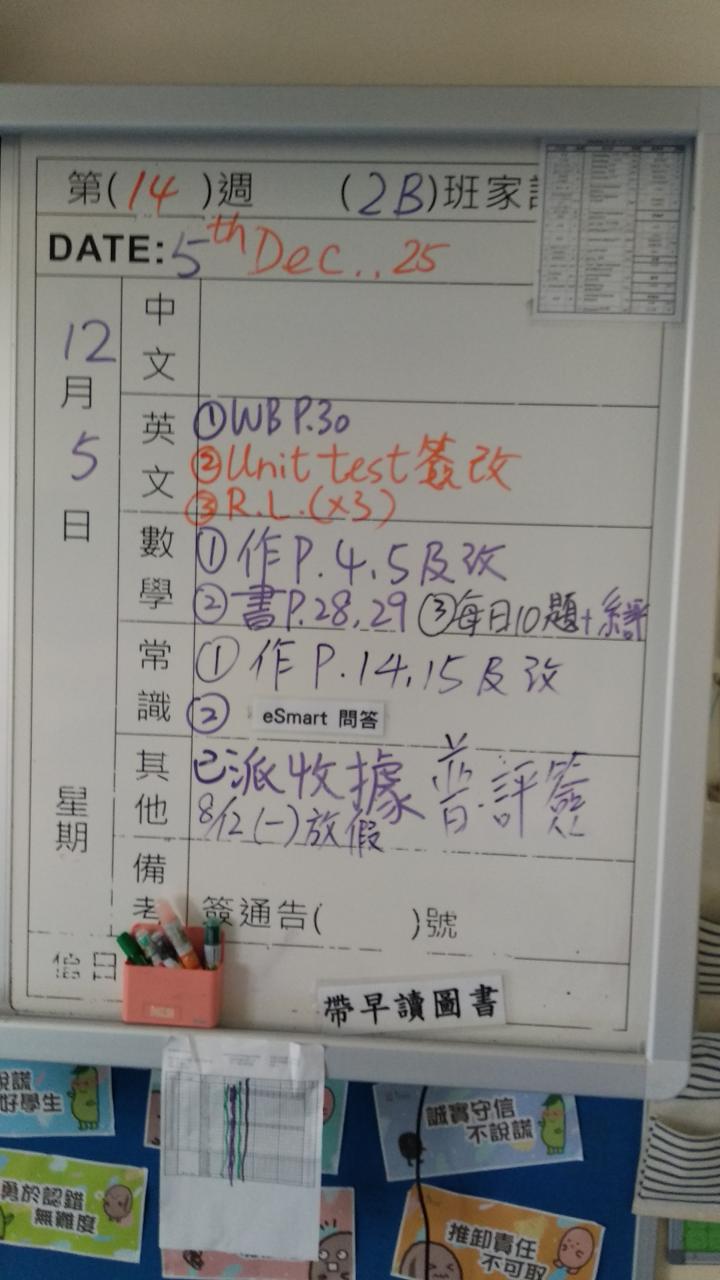 第(14)週 (2B)班家
DATE: 5th Dec.. 25
12月5日
星期
中文
英文
①WB P.30
②Unit test 簽改
③R.L.(x3)
數學
①作P.4,5及改
②書P.28,29 ③每日10題+
常識
①作P.14,15及改
② eSmart 問答
其他
已派收據 普.評簽
8/12(一)放假
備考
簽通告( )號
帶早讀圖書
說謊
好學生
誠實守信
不說謊
勇於認錯
無難度
推卸責任
不可取